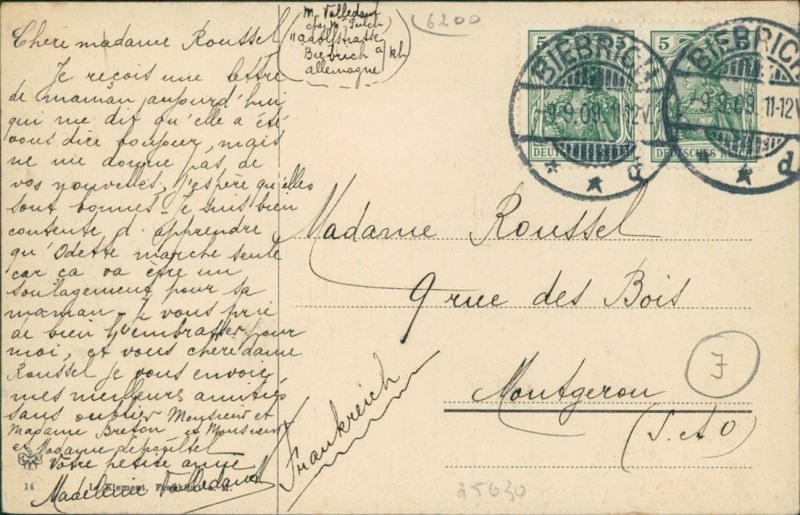 Chère madame Roussel
Je reçois une lettre
de maman aujourd'hui
qui me dit qu'elle a été
vous dire bonjour, mais
ne me donne pas de
vos nouvelles, j'espère qu'elles
sont bonnes - Je suis bien
contente d'apprendre
qu'Odette marche seule
car ça va être un
soulagement pour sa
maman - Je vous prie
de bien l'embrasser pour
moi, et vous chère dame
Roussel je vous envoie
mes meilleurs amitiés
sans oublier Monsieur et
Madame Breton et Monsieur
et Madame
Votre petite amie
Madeleine Valledant
M. Valledant
chez Mr
Adolfstrasse
Biebrich a/Rh
allemagne
6200
5 5
BIEBRICH
9.9.09. 11-12V.
DEUTSCHES REICH
* * d
BIEBRICH
9.9.09. 11-12V.
DEUTSCHES REICH
* * d
Madame Roussel
9 rue des Bois
Montgeron
(S. et O)
Frankreich
7
25630
14 L. Klement, Frankfurt a. M.